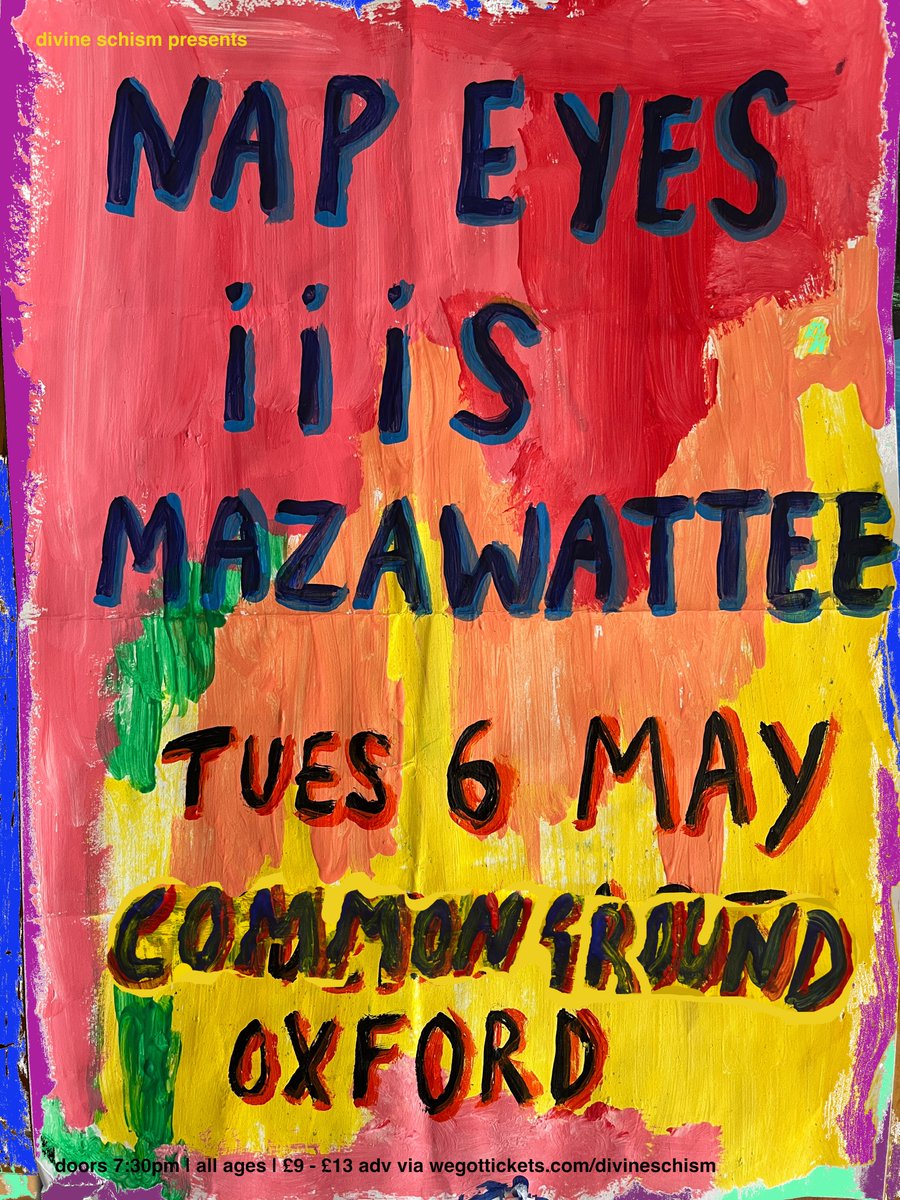 divine schism presents
NAP EYES
iiis
MAZAWATTEE
TUES 6 MAY
COMMON GROUND
OXFORD
doors 7:30pm | all ages | £9 - £13 adv via wegottickets.com/divineschism